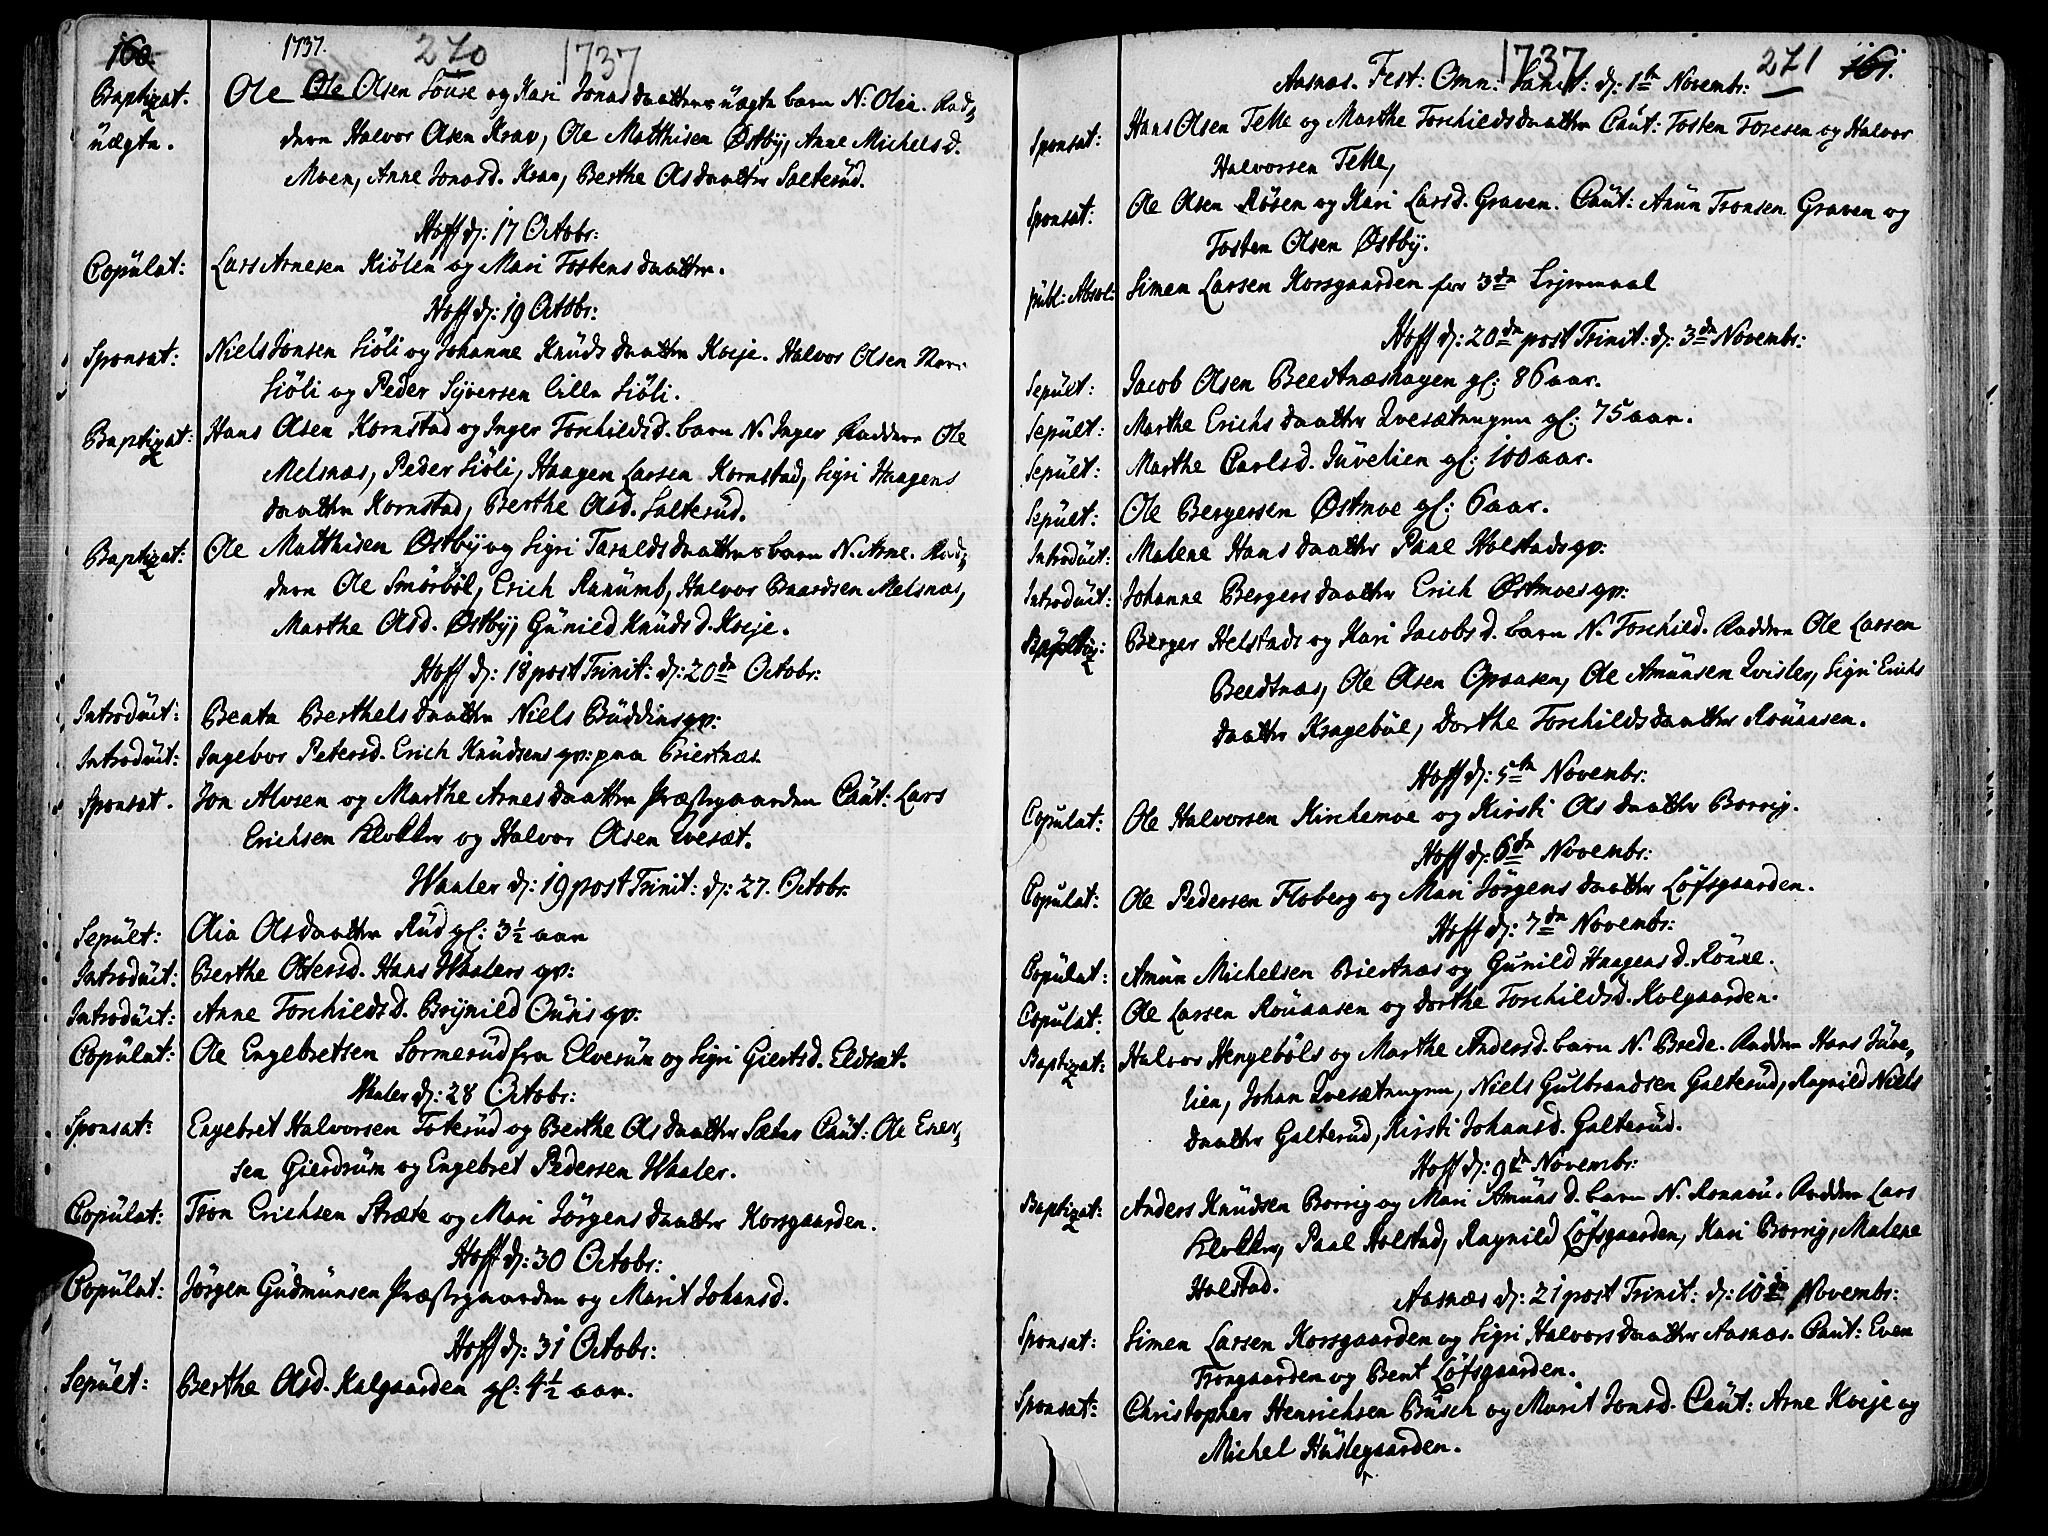 160.
1737.
270
1737
Baptizat. Ole Ole Olsen Souse og Kari Jonasdaatters uægte barn N: Olia. Fad,
uægte. dern Halvor Olsen Krav, Ole Matthisen Østby, Anne Michelsd.
Moen, Anne Jonasd. Krav, Berthe Olsdaatter Salterud.
Hoff d: 17 Octobr:
Copulat: Lars Arnesen Kiölen og Mari Tostensdaatter.
Hoff d: 19 Octobr:
Sponsat: Niels Jonsen Siöli og Johanne Knudsdaatter Kveje. Halvor Olsen Norr
Siöli og Peder Syversen lille Siöli.
Baptizat: Hans Olsen Kornstad og Inger Torchildsd. barn N. Inger Faddere Ole
Melsnæs, Peder Siöli, Haagen Larsen Kornstad, Sigri Haagens
daatter Kornstad, Berthe Olsd. Salterud.
Baptizat: Ole Matthisen Østby og Sigri Taraldsdaatters barn N. Arne. Fad,
dern Ole Smörböl, Erich Ranumb, Halvor Baardsen Melsnæs,
Marthe Olsd. Østby, Gunild Knudsd. Kveje.
Hoff d: 18 post Trinit: d: 20de Octobr:
Introduit: Beata Berthelsdaatter Niels Buddings qv:
Introduit: Ingebor Petersd. Erich Knudsens qv: paa Briertnæs
Sponsat. Jon Alvsen og Marthe Arnesdaatter Præstegaarden Caut: Lars
Erichsen Klokker og Halvor Olsen Qvesæt.
Waaler d: 19 post Trinit: d: 27. Octobr.
Sepult: Olia Olsdaatter Rud gl: 3½ aar
Introduit: Berthe Ottersd. Hans Waalers qv:
Introduit: Anne Torchildsd. Brynild Ouris qv:
Copulat: Ole Engebretsen Sormerud fra Elverum og Sigri Giertsd. Eldsæt.
Waaler d: 28 Octobr:
Sponsat: Engebret Halvorsen Toterud og Berthe Olsdaatter Sæter Caut: Ole Ener,
sen Gierdrum og Engebret Pedersen Waaler.
Copulat: Tron Erichsen Stræte og Mari Jörgensdaatter Korsgaarden.
Hoff d: 30 Octobr:
Copulat: Jörgen Gudmunsen Præstegaarden og Marit Johansd.
Hoff d: 31 Octobr:
Sepult: Berthe Olsd. Kalgaarden gl: 4½ aar.
1737
271
161.
Aasnæs. Fest: Omn: Sanct: d: 1te Novembr:
Sponsat: Hans Olsen Telle og Marthe Torchildsdaatter Caut: Tosten Toresen og Halvor
Halvorsen Telle,
Sponsat: Ole Olsen Rösen og Kari Larsd. Graven. Caut: Amun Tronsen Graven og
Tosten Olsen Østby.
publ: Absol: Simen Larsen Korsgaarden for 3de Lejermaal
Hoff d: 20de post Trinit: d: 3de Novembr:
Sepult: Jacob Olsen Beedtnæshagen gl: 86 aar.
Sepult: Marthe Erichsdaatter Qvesætengen gl: 75 aar.
Sepult: Marthe Carlsd. Juvelien gl: 100 aar.
Sepult: Ole Bergersen Østmoe gl: 6 aar.
Introduit: Malene Hansdaatter Paal Holstads qv:
Introduit: Johanne Bergersdaatter Erich Østmoes qv:
Berger Helstads og Kari Jacobsd. barn N. Torchild. Faddere Ole Larsen
Beedtnæs, Ole Olsen Opaasen, Ole Amunsen Qvisler, Sigri Erichs
daatter Kragebøl, Dorthe Torchildsdaatter Rouaasen.
Hoff d: 5te Novembr:
Copulat: Ole Halvorsen Kirchemoe og Kirsti Olsdaatter Borrig.
Hoff d: 6de Novembr:
Copulat: Ole Pedersen Floberg og Mari Jörgensdaatter Löfsgaarden.
Hoff d: 7de Novembr:
Copulat: Amun Michelsen Briertnæs og Gunild Haagensd. Röine.
Copulat: Ole Larsen Rouaasen og Dorthe Torchildsd. Kolgaarden.
Baptizat: Halvor Hengeböls og Marthe Andersd. barn N. Brede. Faddere Hans Juve,
lien, Johan Qvesætengen, Niels Gulbrandsen Galterud, Ragnild Niels
daatter Galterud, Kirsti Johansd. Galterud.
Hoff d: 9de Novembr:
Baptizat: Anders Knudsen Borrig og Mari Amunsd. barn N. Ronnou. Faddere Lars
Klokker, Paal Holstad, Ragnild Löfsgaarden, Kari Borrig, Malene
Holstad.
Aasnæs d: 21 post Trinit: d: 10de Novembr:
Sponsat: Simen Larsen Korsgaarden og Sigri Halvorsdaatter Aasnæs. Caut: Even
Trongaarden og Bent Löfsgaarden.
Sponsat: Christopher Henrichsen Busch og Marit Jonsd. Caut: Arne Kveje og
Michel Huslegaarden.